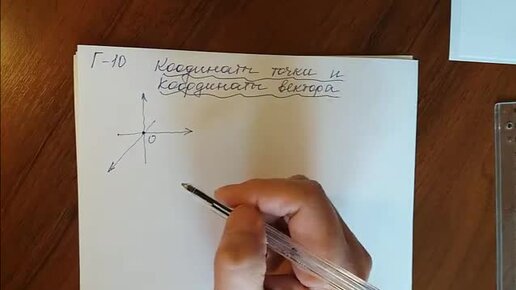 Г-10 Координаты точки и
координаты вектора
О